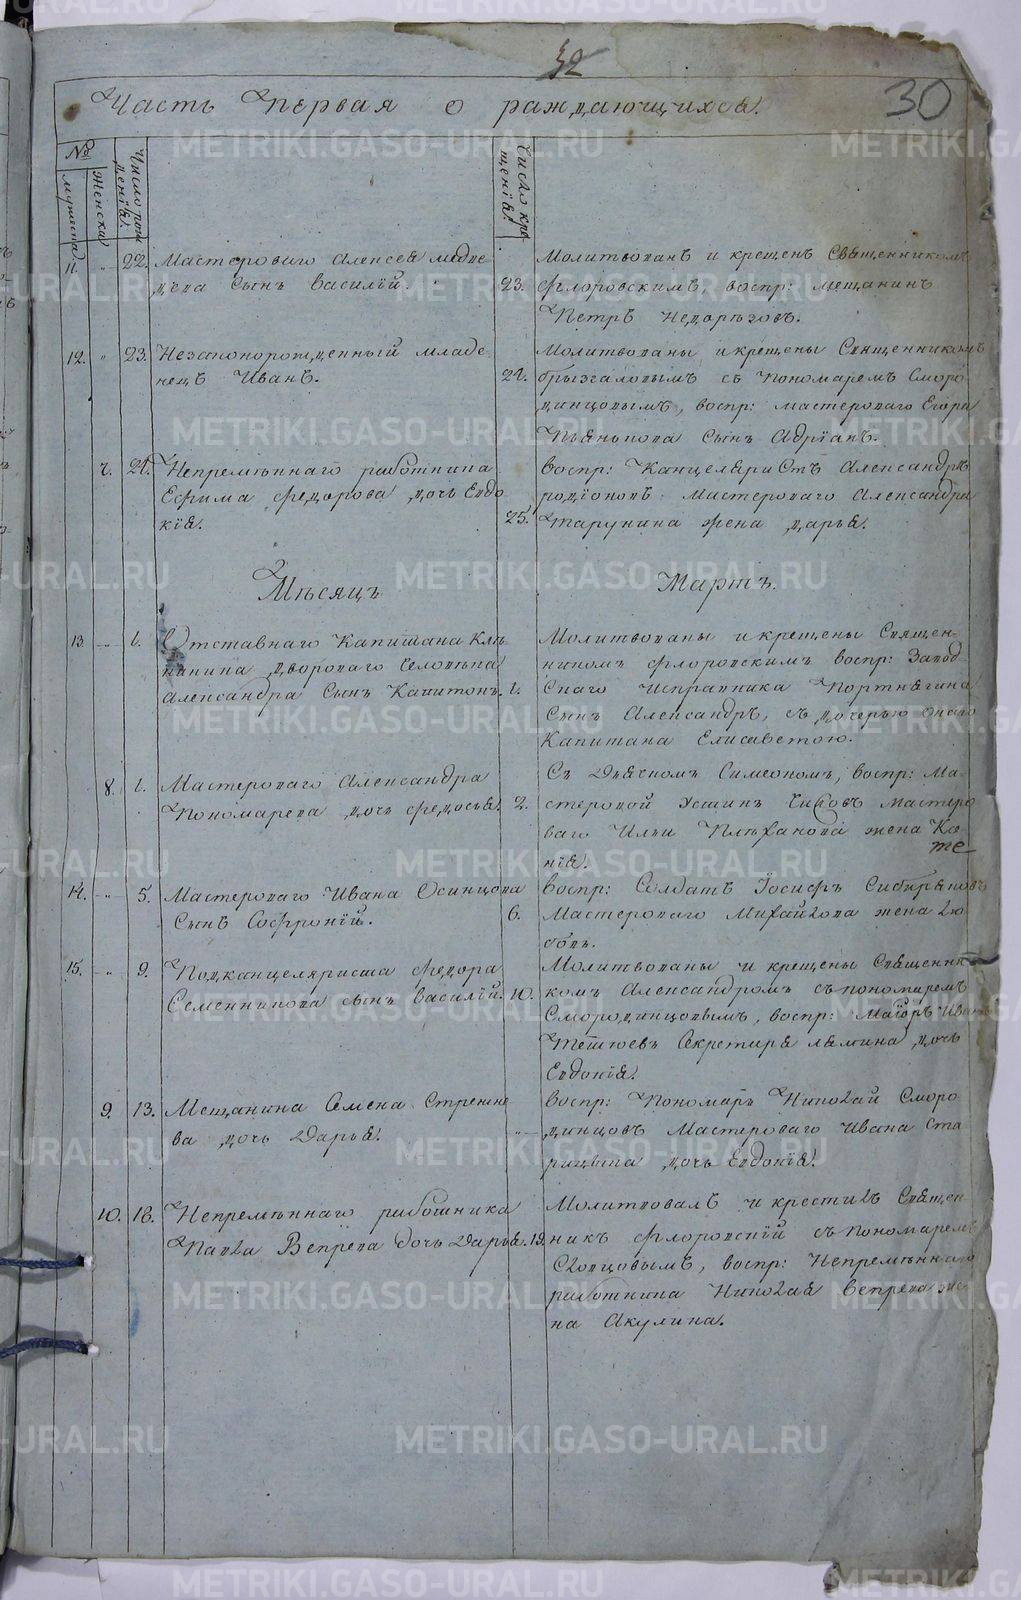 32
30
Часть первая о раждающихся.
№
мужеска
женска
Число рож
денія.
Число кре
щенія.
11. " 22. Мастероваго Алексея медве
дева сынъ Василій.
23.
Молитвованъ и крещенъ Священникомъ
Флоровскимъ, воспр: мещанинъ
Петръ Недорѣзовъ.
12. " 23. Незаконорожденный младе
нецъ Иванъ.
24.
Молитвованы и крещены Священникомъ
Брызгаловымъ съ пономаремъ Сморо
динцовымъ, воспр: мастероваго Егора
Пьянкова сынъ Адріанъ.
7. 24. Непремѣннаго работника
Ефима Федорова дочь Евдо
кія.
25.
воспр: Канцеляристъ Александръ
Родіоновъ. Мастероваго Александра
Тарунина жена Дарья.
Мѣсяцъ Мартъ.
13. " 1. Отставнаго Капитана Кле
пинина двороваго человѣка
Александра сынъ Капитонъ. 1.
Молитвованы и крещены Священ-
никомъ Флоровскимъ воспр: Завод
скаго Исправника Портнягина
сынъ Александръ, съ дочерью онаго
Капитана Елисаветою.
8. 1. Мастероваго Александра
Пономарева дочь Федосья.
2.
Съ Дьячкомъ Симеономъ, воспр: Ма-
стеровой Устинъ Мастеро
ваго Ильи Плѣханова жена
нія.
14. " 5. Мастероваго Ивана Осинцова
сынъ Софроній.
6.
воспр: Солдатъ Іосифъ Сибиряковъ
Мастероваго Михайлова жена Лю
бовь.
15. " 9. Подканцеляриста Федора
Семенникова сынъ Василій. 10.
Молитвованы и крещены Священни
комъ Александромъ съ пономаремъ
Смородинцовымъ, воспр: Маіоръ Иванъ
Тетюевъ Секретаря Лямина дочь
Евдокія.
9. 13. Мещанина Семена Стрежне
ва дочь Дарья.
"
воспр: Пономарь Николай Сморо
динцовъ Мастероваго Ивана Ста
рицына дочь Евдокія.
10. 18. Непремѣннаго работника
Павла Вепрева дочь Дарья. 19.
Молитвовалъ и крестилъ Священ
никъ Флоровскій съ пономаремъ
Скопцовымъ, воспр: Непремѣннаго
работника Николая Вепрева же
на Акулина.
METRIKI.GASO-URAL.RU